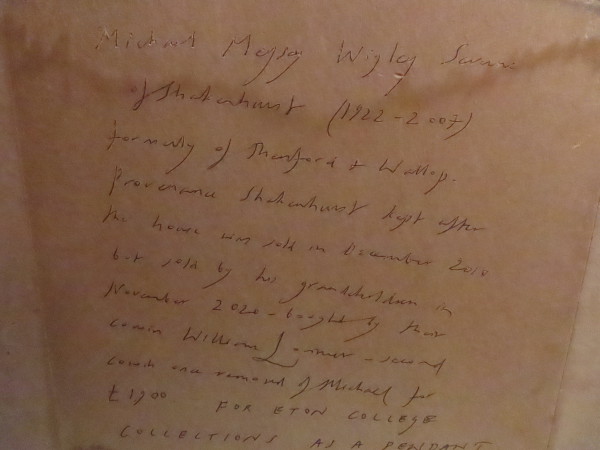 Michael Meysey Wigley Severne
of Shakenhurst (1922-2007)
formerly of Thenford & Wallop.
Provenance Shakenhurst kept after
the house was sold in December 2010
but sold by his grandchildren in
November 2020 - bought by their
cousin William - second
cousin once removed of Michael for
£1900 FOR ETON COLLEGE
COLLECTIONS AS A PENDANT